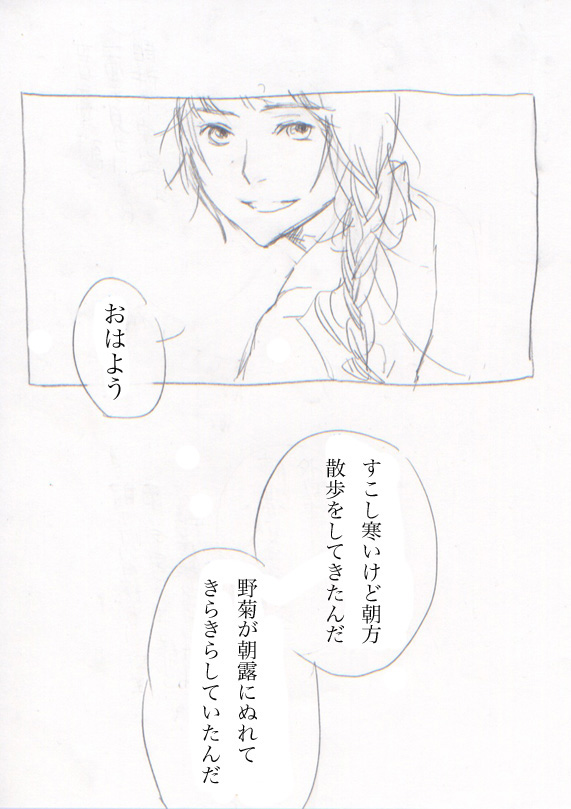 おはよう
すこし寒いけど朝方
散歩をしてきたんだ
野菊が朝露にぬれて
きらきらしていたんだ